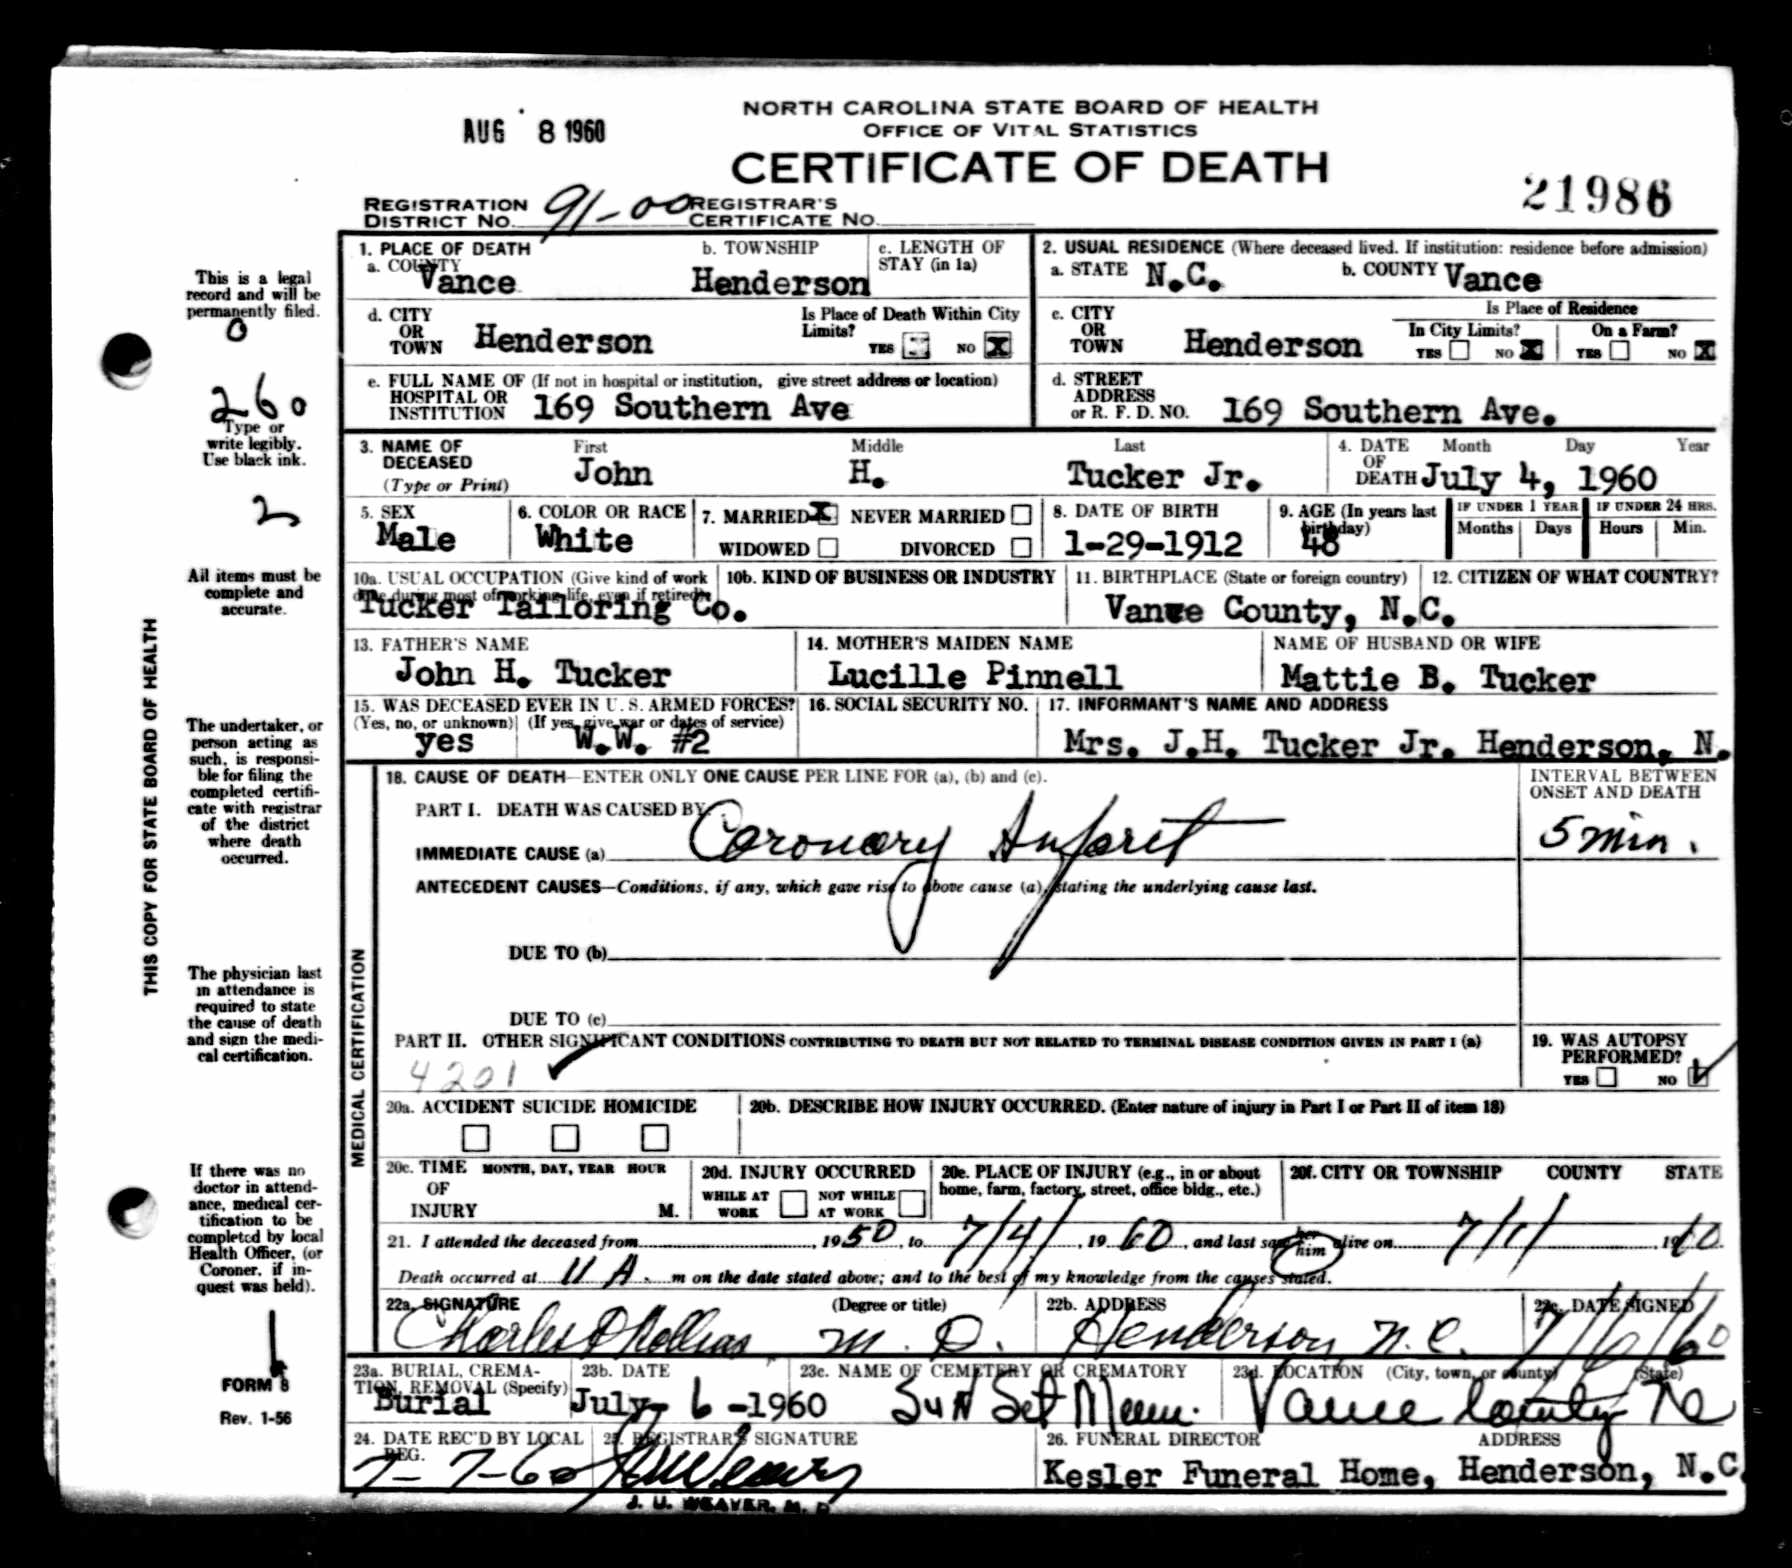 AUG 8 1960
NORTH CAROLINA STATE BOARD OF HEALTH
OFFICE OF VITAL STATISTICS
CERTIFICATE OF DEATH
21986
REGISTRATION DISTRICT NO. 91-00 REGISTRAR'S CERTIFICATE NO.
1. PLACE OF DEATH
a. COUNTY Vance
b. TOWNSHIP Henderson
c. LENGTH OF STAY (in 1a)
2. USUAL RESIDENCE (Where deceased lived. If institution: residence before admission)
a. STATE N.C.
b. COUNTY Vance
d. CITY OR TOWN Henderson
Is Place of Death Within City Limits? YES NO X
c. CITY OR TOWN Henderson
Is Place of Residence
In City Limits? YES NO X
On a Farm? YES NO X
e. FULL NAME OF HOSPITAL OR INSTITUTION (If not in hospital or institution, give street address or location) 169 Southern Ave
d. STREET ADDRESS or R. F. D. NO. 169 Southern Ave.
3. NAME OF DECEASED (Type or Print)
First John
Middle H.
Last Tucker Jr.
4. DATE OF DEATH Month Day Year July 4, 1960
5. SEX Male
6. COLOR OR RACE White
7. MARRIED X NEVER MARRIED
WIDOWED DIVORCED
8. DATE OF BIRTH 1-29-1912
9. AGE (In years last birthday) 48
IF UNDER 1 YEAR Months Days
IF UNDER 24 HRS. Hours Min.
10a. USUAL OCCUPATION (Give kind of work done during most of working life, even if retired) Tucker Tailoring Co.
10b. KIND OF BUSINESS OR INDUSTRY
11. BIRTHPLACE (State or foreign country) Vance County, N.C.
12. CITIZEN OF WHAT COUNTRY?
13. FATHER'S NAME John H. Tucker
14. MOTHER'S MAIDEN NAME Lucille Pinnell
NAME OF HUSBAND OR WIFE Mattie B. Tucker
15. WAS DECEASED EVER IN U. S. ARMED FORCES?
(Yes, no, or unknown) yes
(If yes, give war or dates of service) W.W. #2
16. SOCIAL SECURITY NO.
17. INFORMANT'S NAME AND ADDRESS Mrs. J.H. Tucker Jr. Henderson, N.
MEDICAL CERTIFICATION
18. CAUSE OF DEATH—ENTER ONLY ONE CAUSE PER LINE FOR (a), (b) and (c).
INTERVAL BETWEEN ONSET AND DEATH
PART I. DEATH WAS CAUSED BY:
IMMEDIATE CAUSE (a) Coronary
5 min.
ANTECEDENT CAUSES—Conditions, if any, which gave rise to above cause (a), stating the underlying cause last.
DUE TO (b)
DUE TO (c)
PART II. OTHER SIGNIFICANT CONDITIONS CONTRIBUTING TO DEATH BUT NOT RELATED TO TERMINAL DISEASE CONDITION GIVEN IN PART I (a)
4201
19. WAS AUTOPSY PERFORMED?
YES NO
20a. ACCIDENT SUICIDE HOMICIDE
20b. DESCRIBE HOW INJURY OCCURRED. (Enter nature of injury in Part I or Part II of item 18)
20c. TIME OF INJURY MONTH, DAY, YEAR HOUR M.
20d. INJURY OCCURRED
WHILE AT WORK NOT WHILE AT WORK
20e. PLACE OF INJURY (e.g., in or about home, farm, factory, street, office bldg., etc.)
20f. CITY OR TOWNSHIP COUNTY STATE
21. I attended the deceased from 1950, to 7/4/, 1960, and last saw her him alive on 7/1/ 1960
Death occurred at 11 A. m on the date stated above; and to the best of my knowledge from the causes stated.
22a. SIGNATURE Charles M. D. (Degree or title)
22b. ADDRESS Henderson N. C.
22c. DATE SIGNED 7/6/60
23a. BURIAL, CREMATION, REMOVAL (Specify) Burial
23b. DATE July- 6 -1960
23c. NAME OF CEMETERY OR CREMATORY Sun Set Mem.
23d. LOCATION (City, town, or county) (State) Vance County NC
24. DATE REC'D BY LOCAL REG. 7-7-60
25. REGISTRAR'S SIGNATURE
J. U. WEAVER, M. D
26. FUNERAL DIRECTOR ADDRESS
Kesler Funeral Home, Henderson, N.C.
THIS COPY FOR STATE BOARD OF HEALTH
This is a legal
record and will be
permanently filed.
0
260
Type or
write legibly.
Use black ink.
2
All items must be
complete and
accurate.
The undertaker, or
person acting as
such, is responsi-
ble for filing the
completed certifi-
cate with registrar
of the district
where death
occurred.
The physician last
in attendance is
required to state
the cause of death
and sign the medi-
cal certification.
If there was no
doctor in attend-
ance, medical cer-
tification to be
completed by local
Health Officer, (or
Coroner, if in-
quest was held).
FORM 8
Rev. 1-56